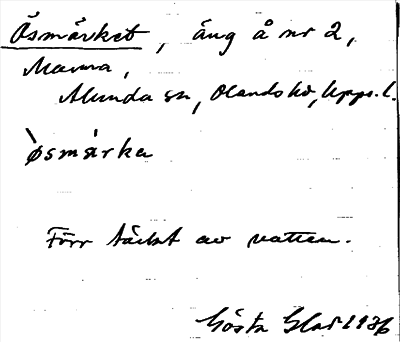 Ösmärket, äng å nr 2,
Marma,
Alunda sn, Olands hd, Upps. l.
`øsmàrka
Förr täckt av vatten.
Gösta Glas 1936